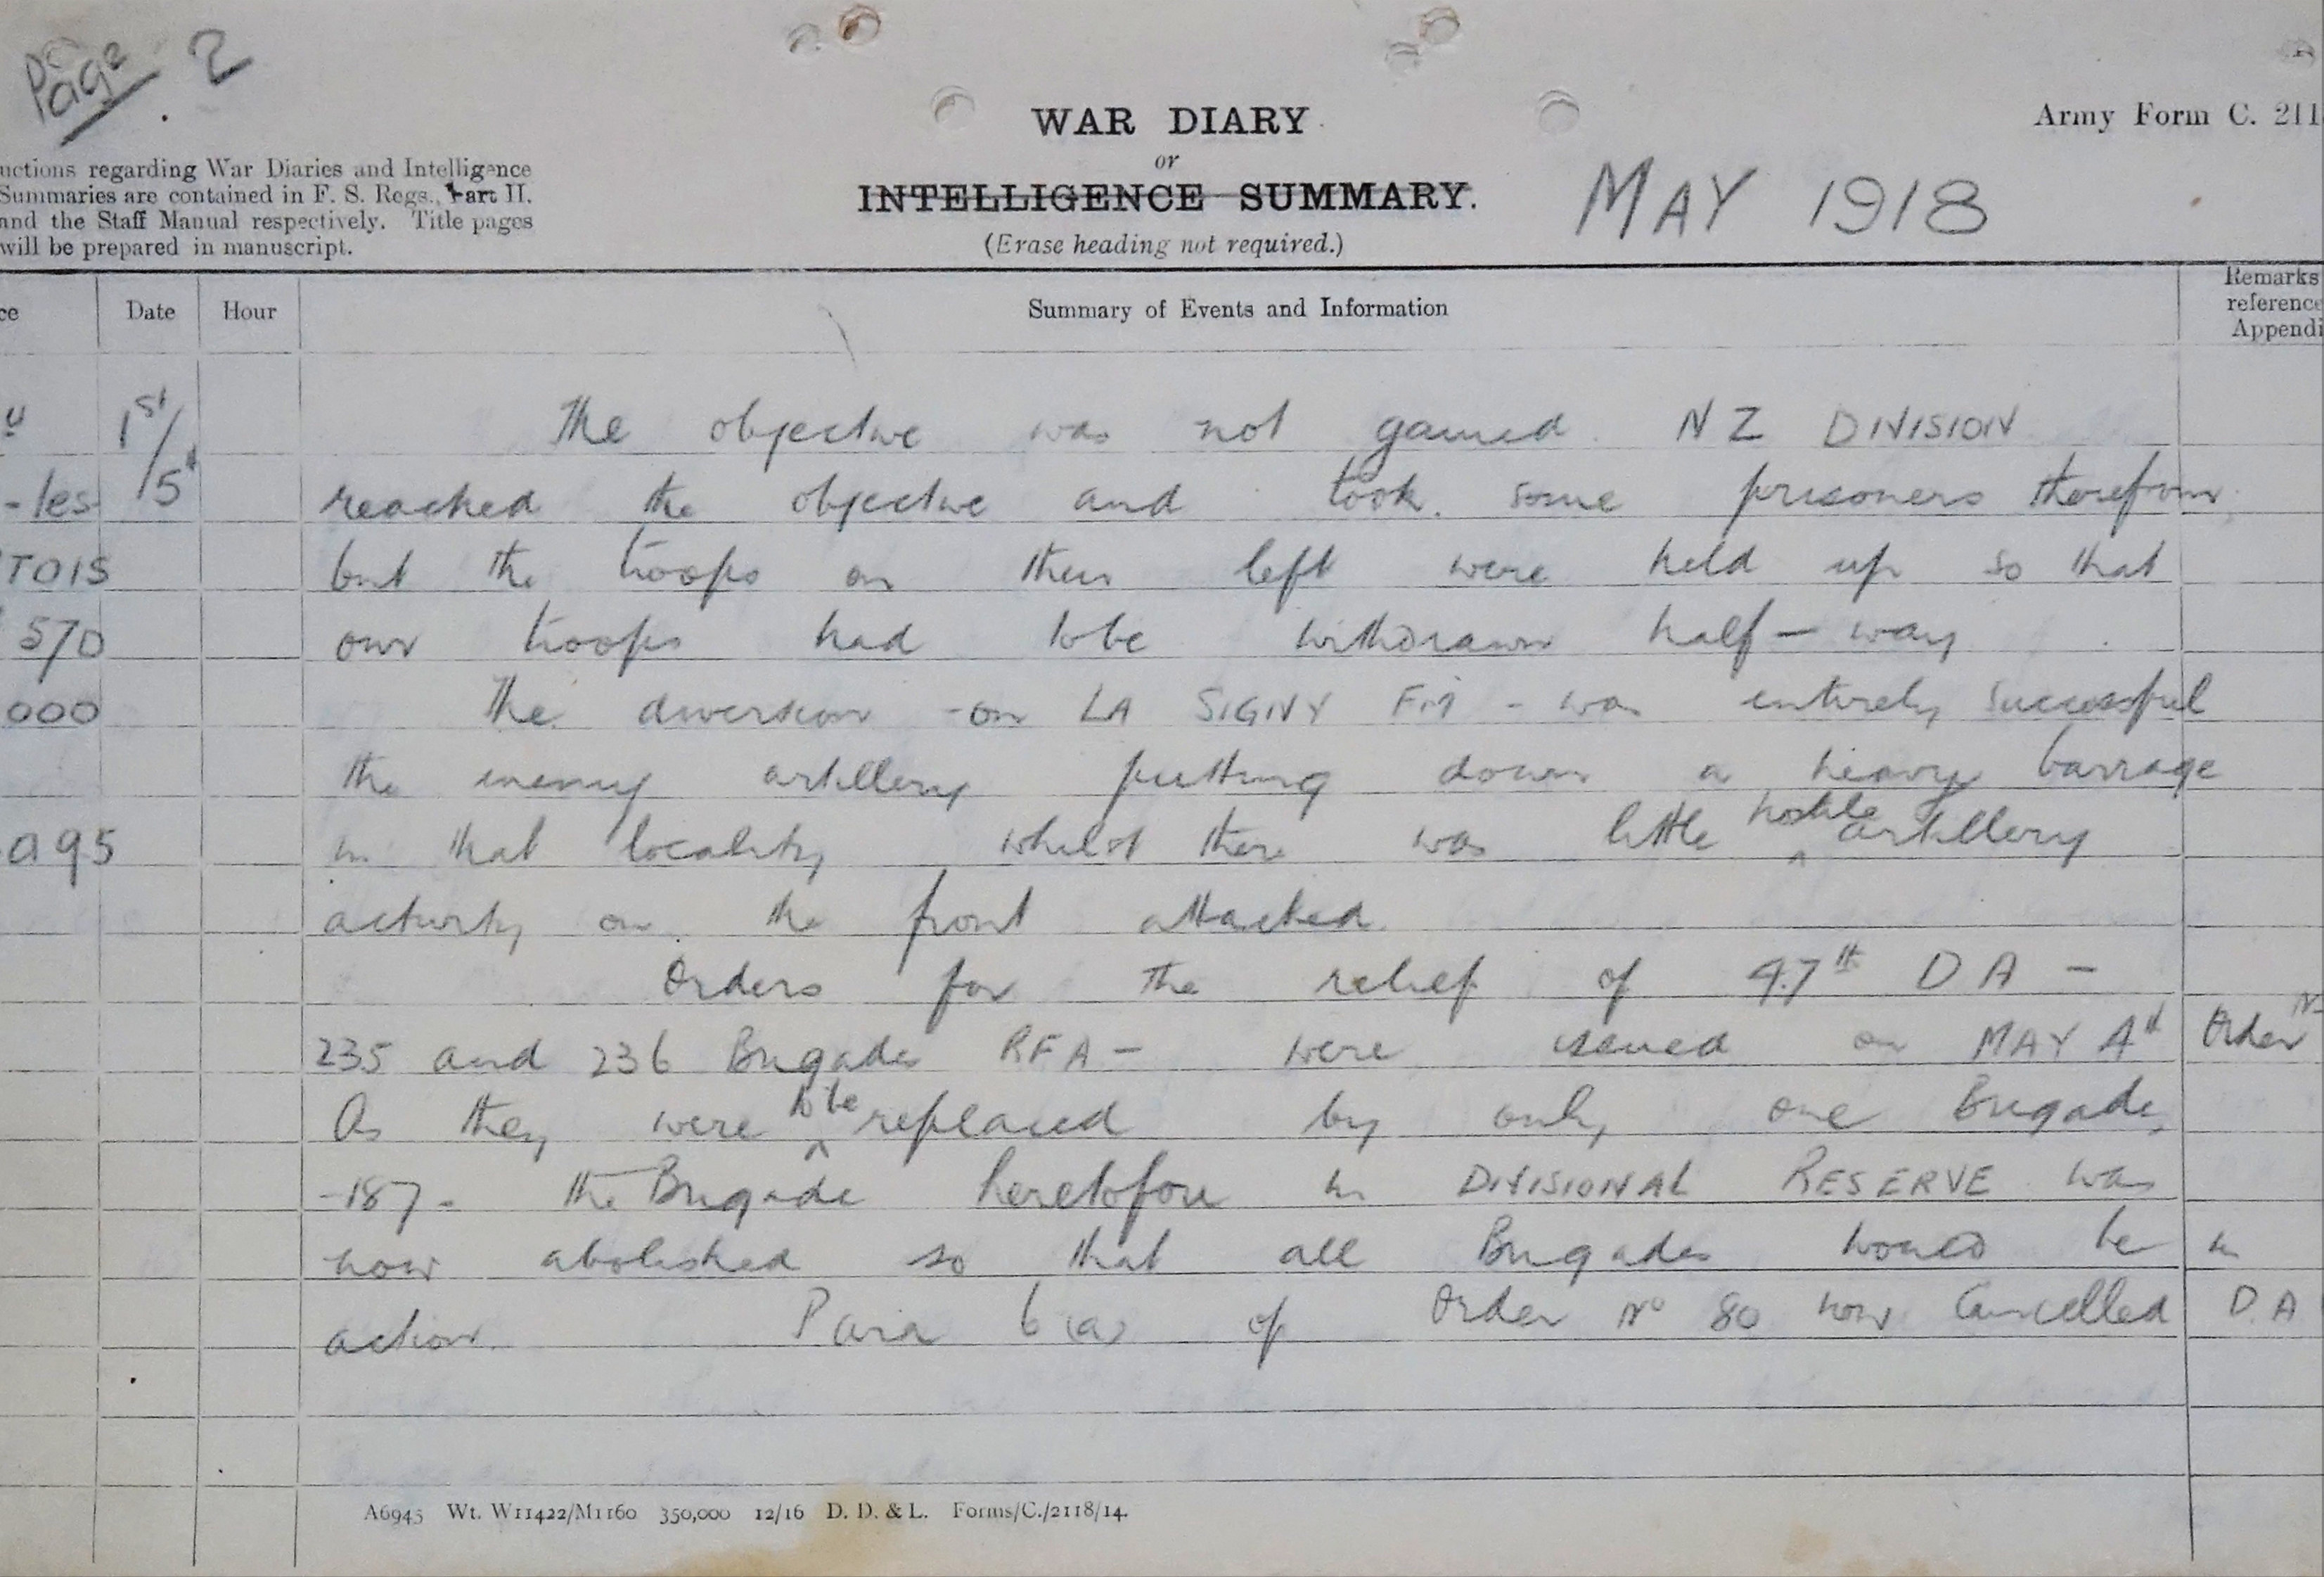 Page 2
WAR DIARY
or
INTELLIGENCE SUMMARY.
(Erase heading not required.)
MAY 1918
Army Form C. 211
uctions regarding War Diaries and Intelligence
Summaries are contained in F. S. Regs., Part II.
and the Staff Manual respectively. Title pages
will be prepared in manuscript.
ce Date Hour Summary of Events and Information Remarks
reference
Appendi
1st/5th
-les
TOIS
57D
000
a95
The objective was not gained. NZ DIVISION
reached the objective and took some prisoners therefrom
but the troops on their left were held up so that
our troops had to be withdrawn half-way
The diversion - on LA SIGNY FM - was entirely successful
the enemy artillery putting down a heavy barrage
in that locality whilst there was little hostile artillery
activity on the front attacked.
Orders for the relief of 47th DA -
235 and 236 Brigades RFA - were issued on MAY 4th Order No
As they were to be replaced by only one Brigade,
-187- the Brigade heretofore in DIVISIONAL RESERVE was
now abolished so that all Brigades would be in
action. Para 6(a) of Order No 80 now Cancelled D.A
A6945 Wt. W11422/M1160 350,000 12/16 D. D. & L. Forms/C./2118/14.